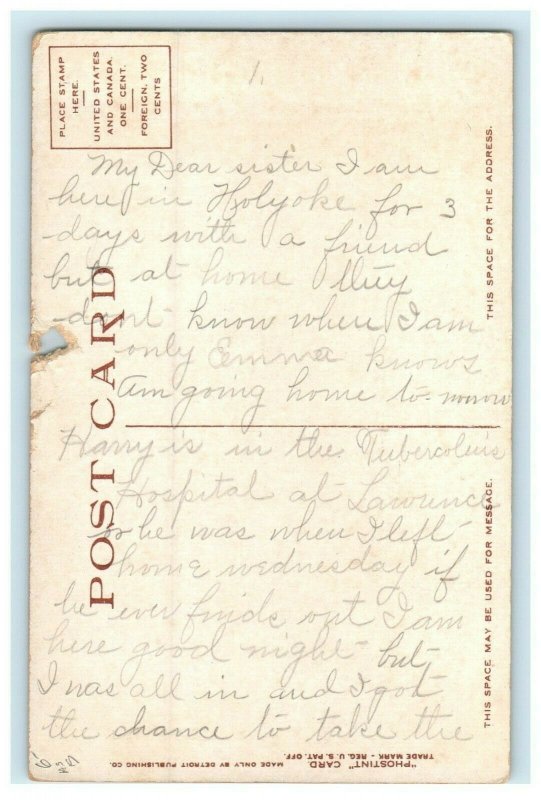 PLACE STAMP
HERE.
UNITED STATES
AND CANADA.
ONE CENT.
FOREIGN, TWO
CENTS
1.
My Dear sister I am
here in Holyoke for 3
days with a friend
but at home they
dont know where I am
only Emma knows
Am going home to-morrow
Harry is in the Tuberculins
Hospital at Lawrence
or he was when I left
home wednesday if
he ever finds out I am
here good night but
I was all in and I got
the chance to take the
POST CARD
THIS SPACE FOR THE ADDRESS.
THIS SPACE MAY BE USED FOR MESSAGE.
"PHOSTINT" CARD.
TRADE MARK - REG. U. S. PAT. OFF.
MADE ONLY BY DETROIT PUBLISHING CO.